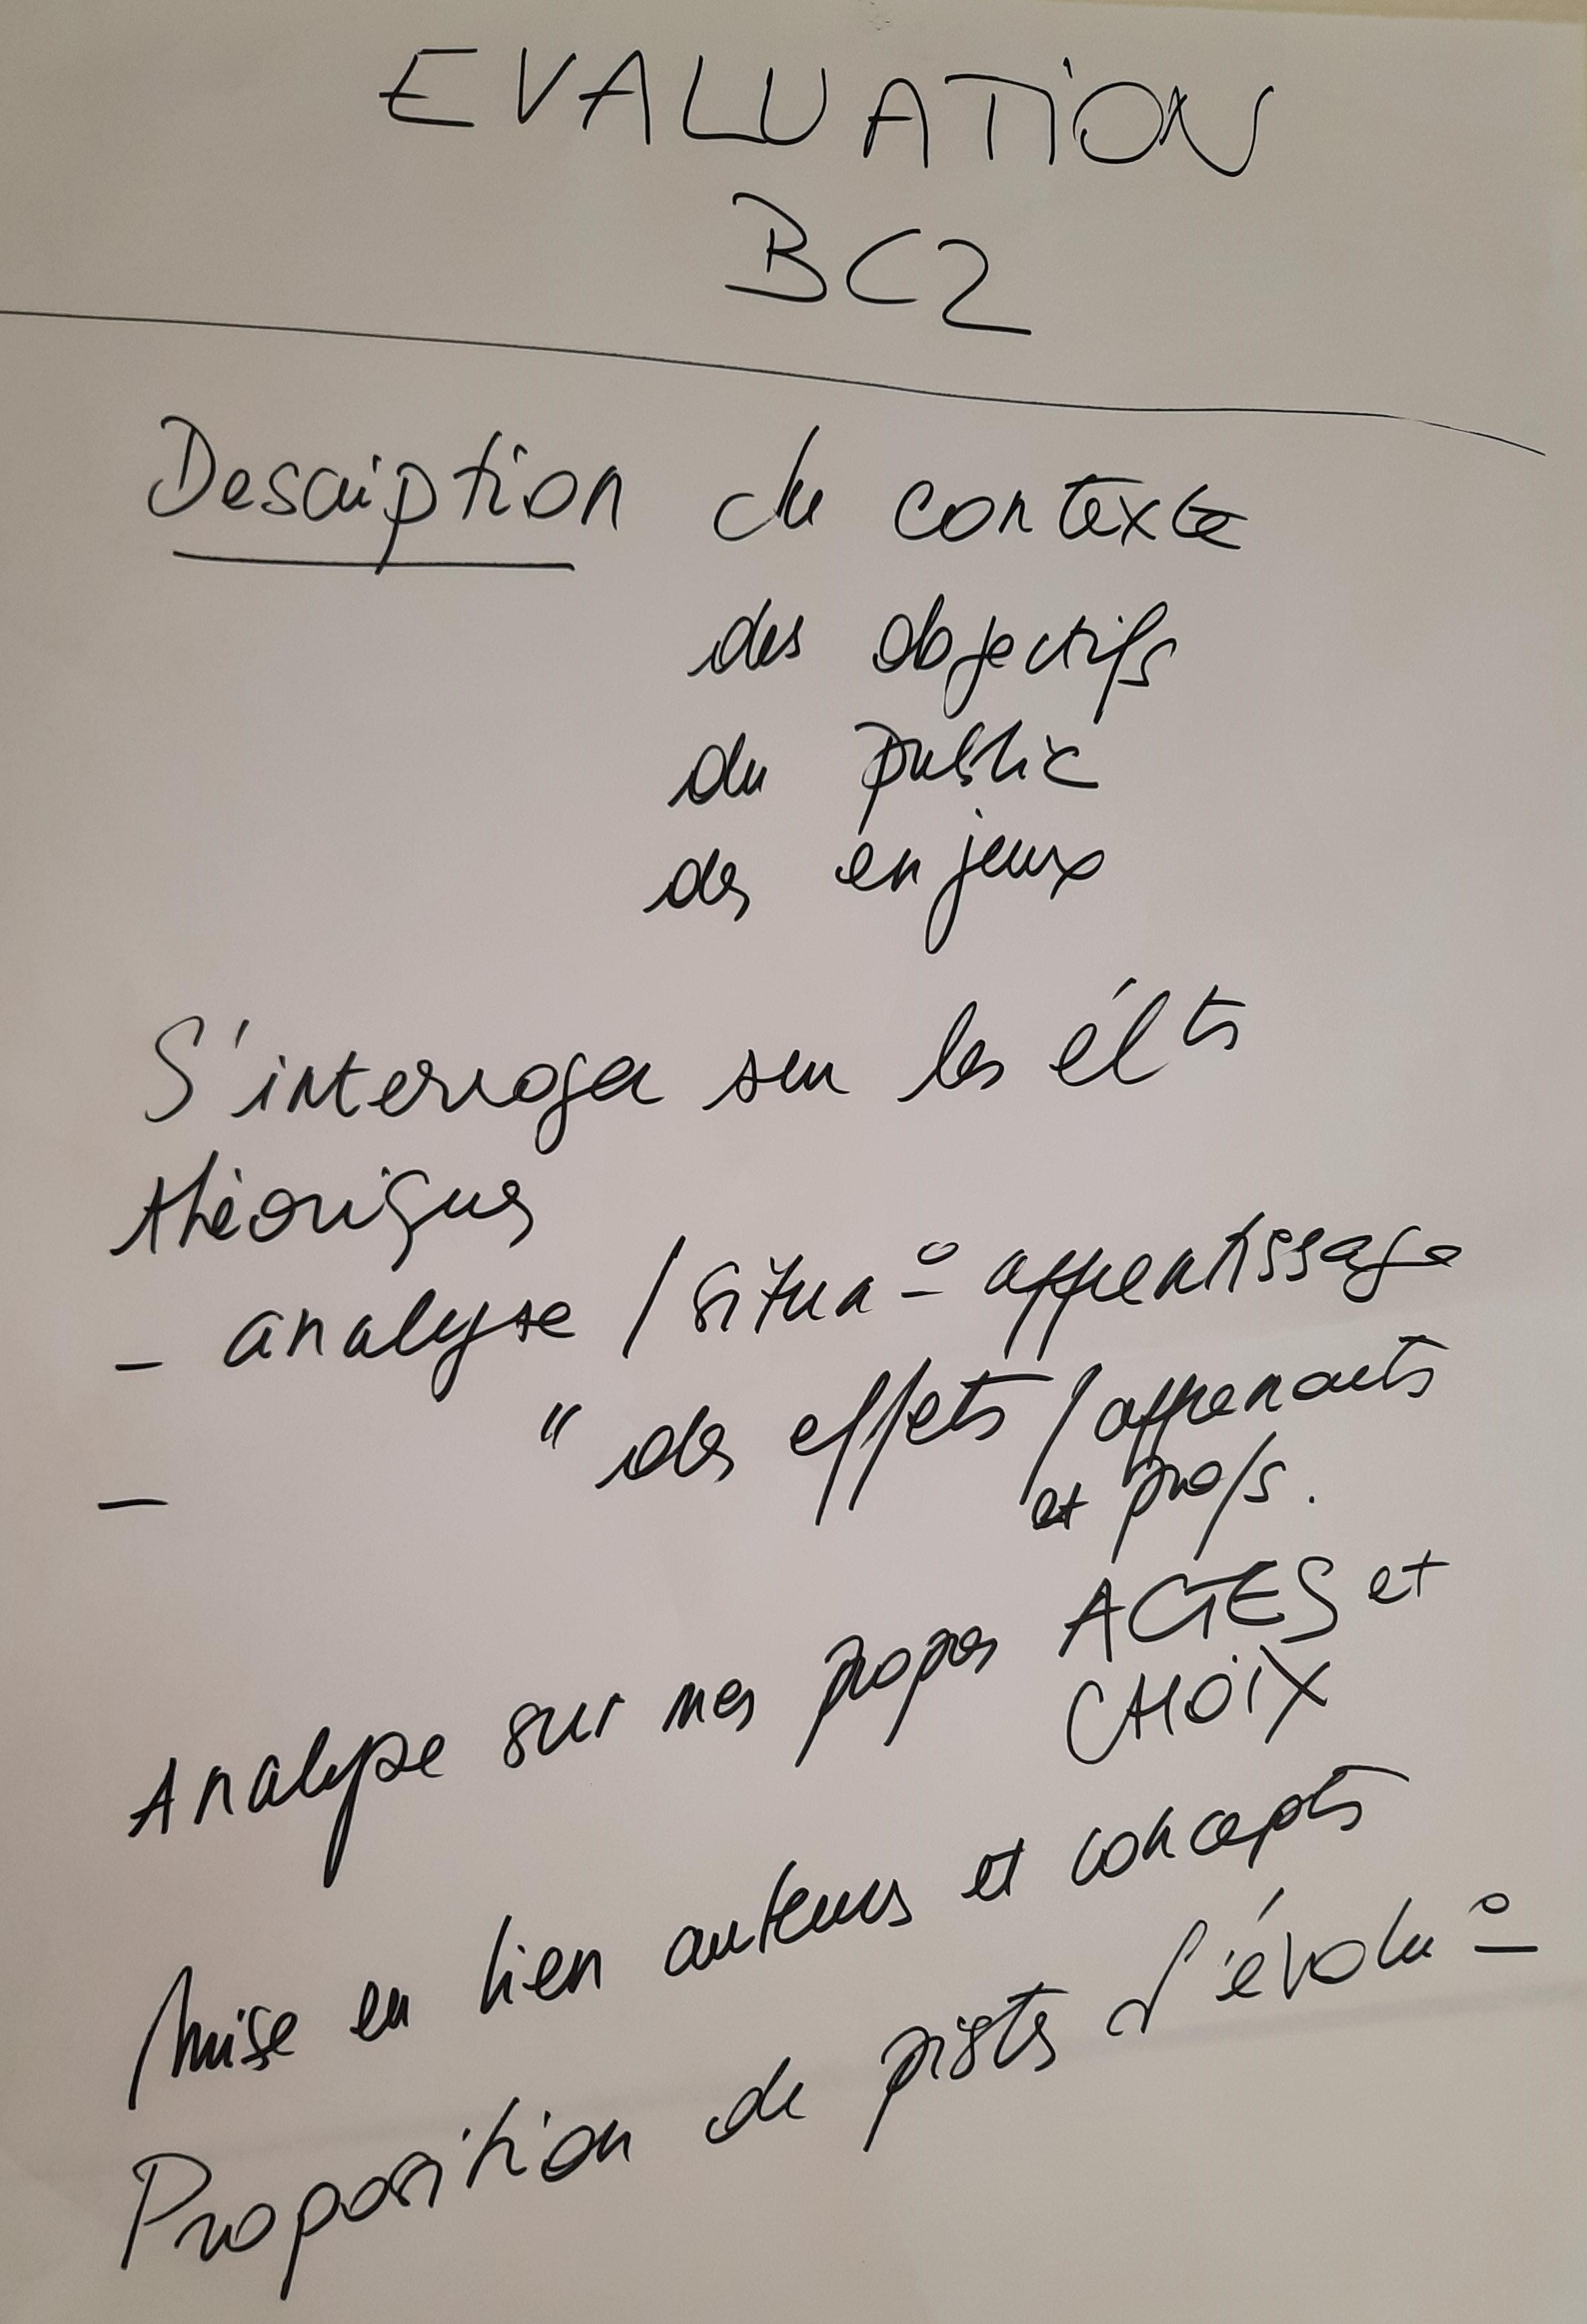 EVALUATION
BC2
Description du contexte
des objectifs
du public
des enjeux
S'interroger sur les élts
théoriques
- analyse / situa° apprentissage
- " des effets / apprenants
et profs.
Analyse sur mes propres ACTES et
CHOIX
Mise en lien auteurs et concepts
Proposition de pistes d'évolu°